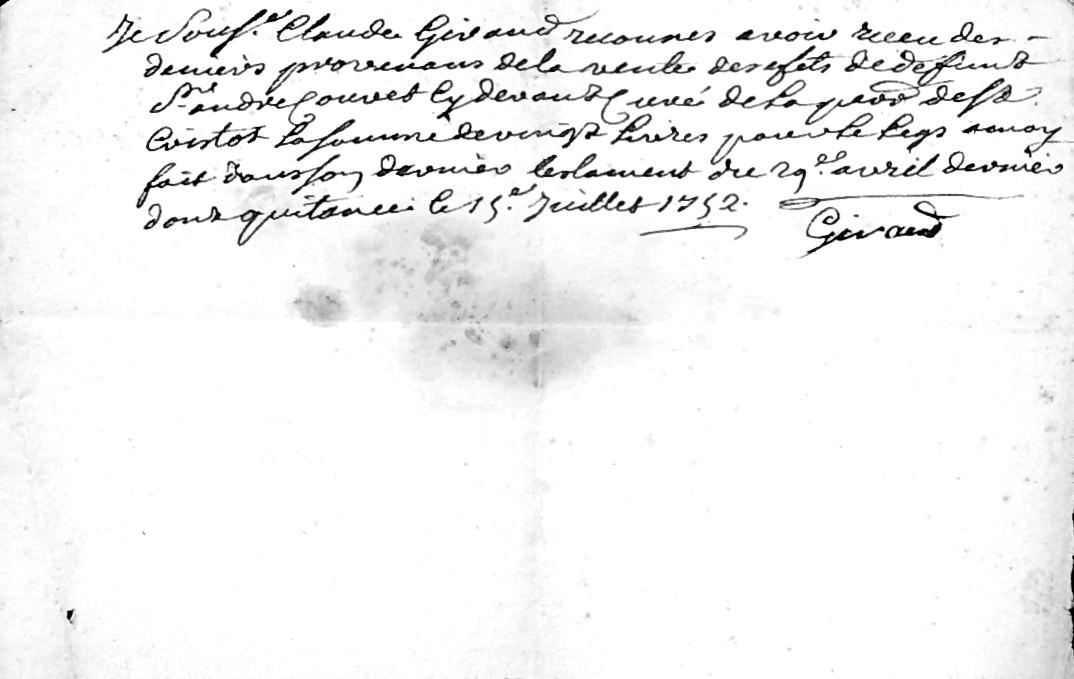 Je Sousg.é Claude Giraud reconnes avoir receu des
deniers provenans de la vente des efets de defunt
Sre andre Couvet Cy devant Curé de la parr de St
Cristot la somme de vingt livres pour le legs a moy
fait dans son dernier testament du 29e avril dernier
dont quitance le 15e Juillet 1752.
Giraud